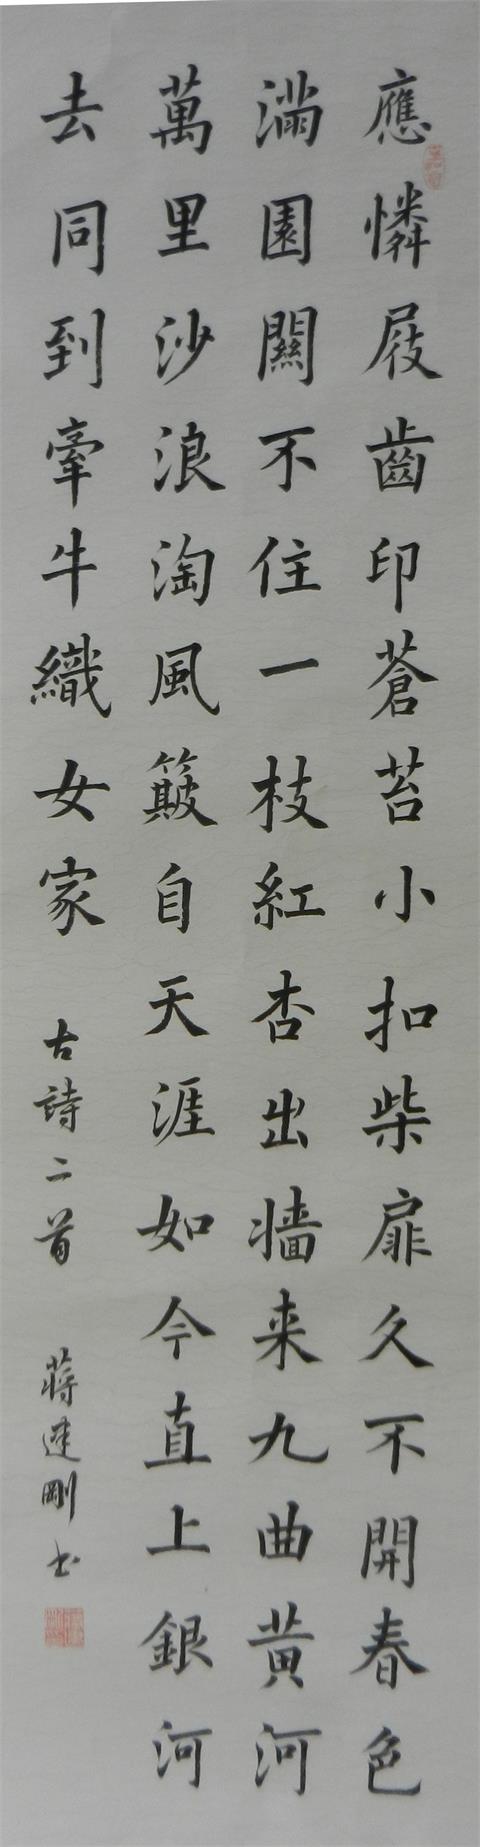 應憐屐齒印蒼苔小扣柴扉久不開春色
滿園關不住一枝紅杏出墻来九曲黄河
萬里沙浪淘風簸自天涯如今直上銀河
去同到牽牛織女家 古詩二首 蔣建剛书